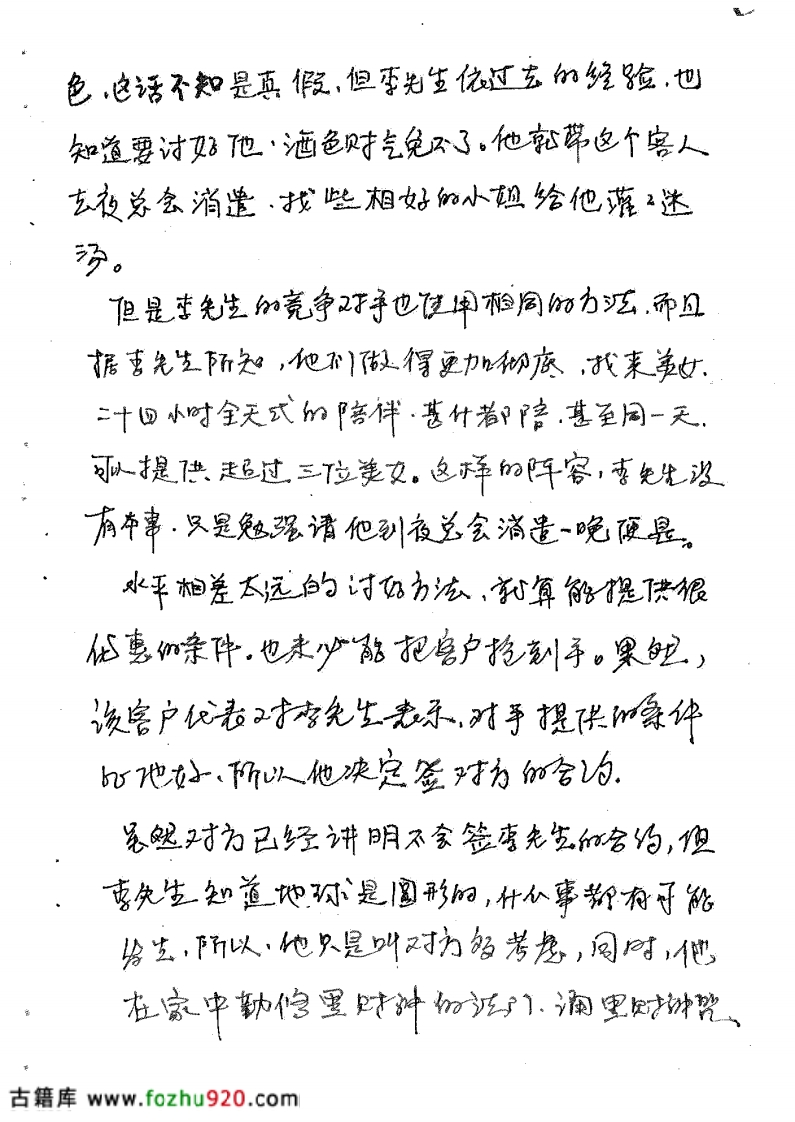 色，这话不知是真假，但李先生依过去的经验，也
知道要讨好他，酒色财气免不了。他就带这个客人
去夜总会消遣，找些相好的小姐给他灌灌迷
汤。
但是李先生的竞争对手也使用相同的方法，而且
据李先生所知，他们做得更加彻底，找来美女，
二十四小时全天式的陪伴，甚什都陪，甚至同一天，
可以提供超过三位美女。这样的阵容，李先生没
有本事，只是勉强请他到夜总会消遣一晚便是。
水平相差太远的讨好方法，就算能提供很
优惠的条件。也未必能把客户抢到手。果然，
该客户代表对李先生表示，对手提供的条件
比他好，所以他决定签对方的合约。
虽然对方已经讲明不会签李先生的合约，但
李先生知道地球是圆形的，什么事都有可能
发生，所以，他只是叫对方多考虑，同时，他
在家中勤修黑财神的法门，诵黑财神咒、
古籍库 www.fozhu920.com